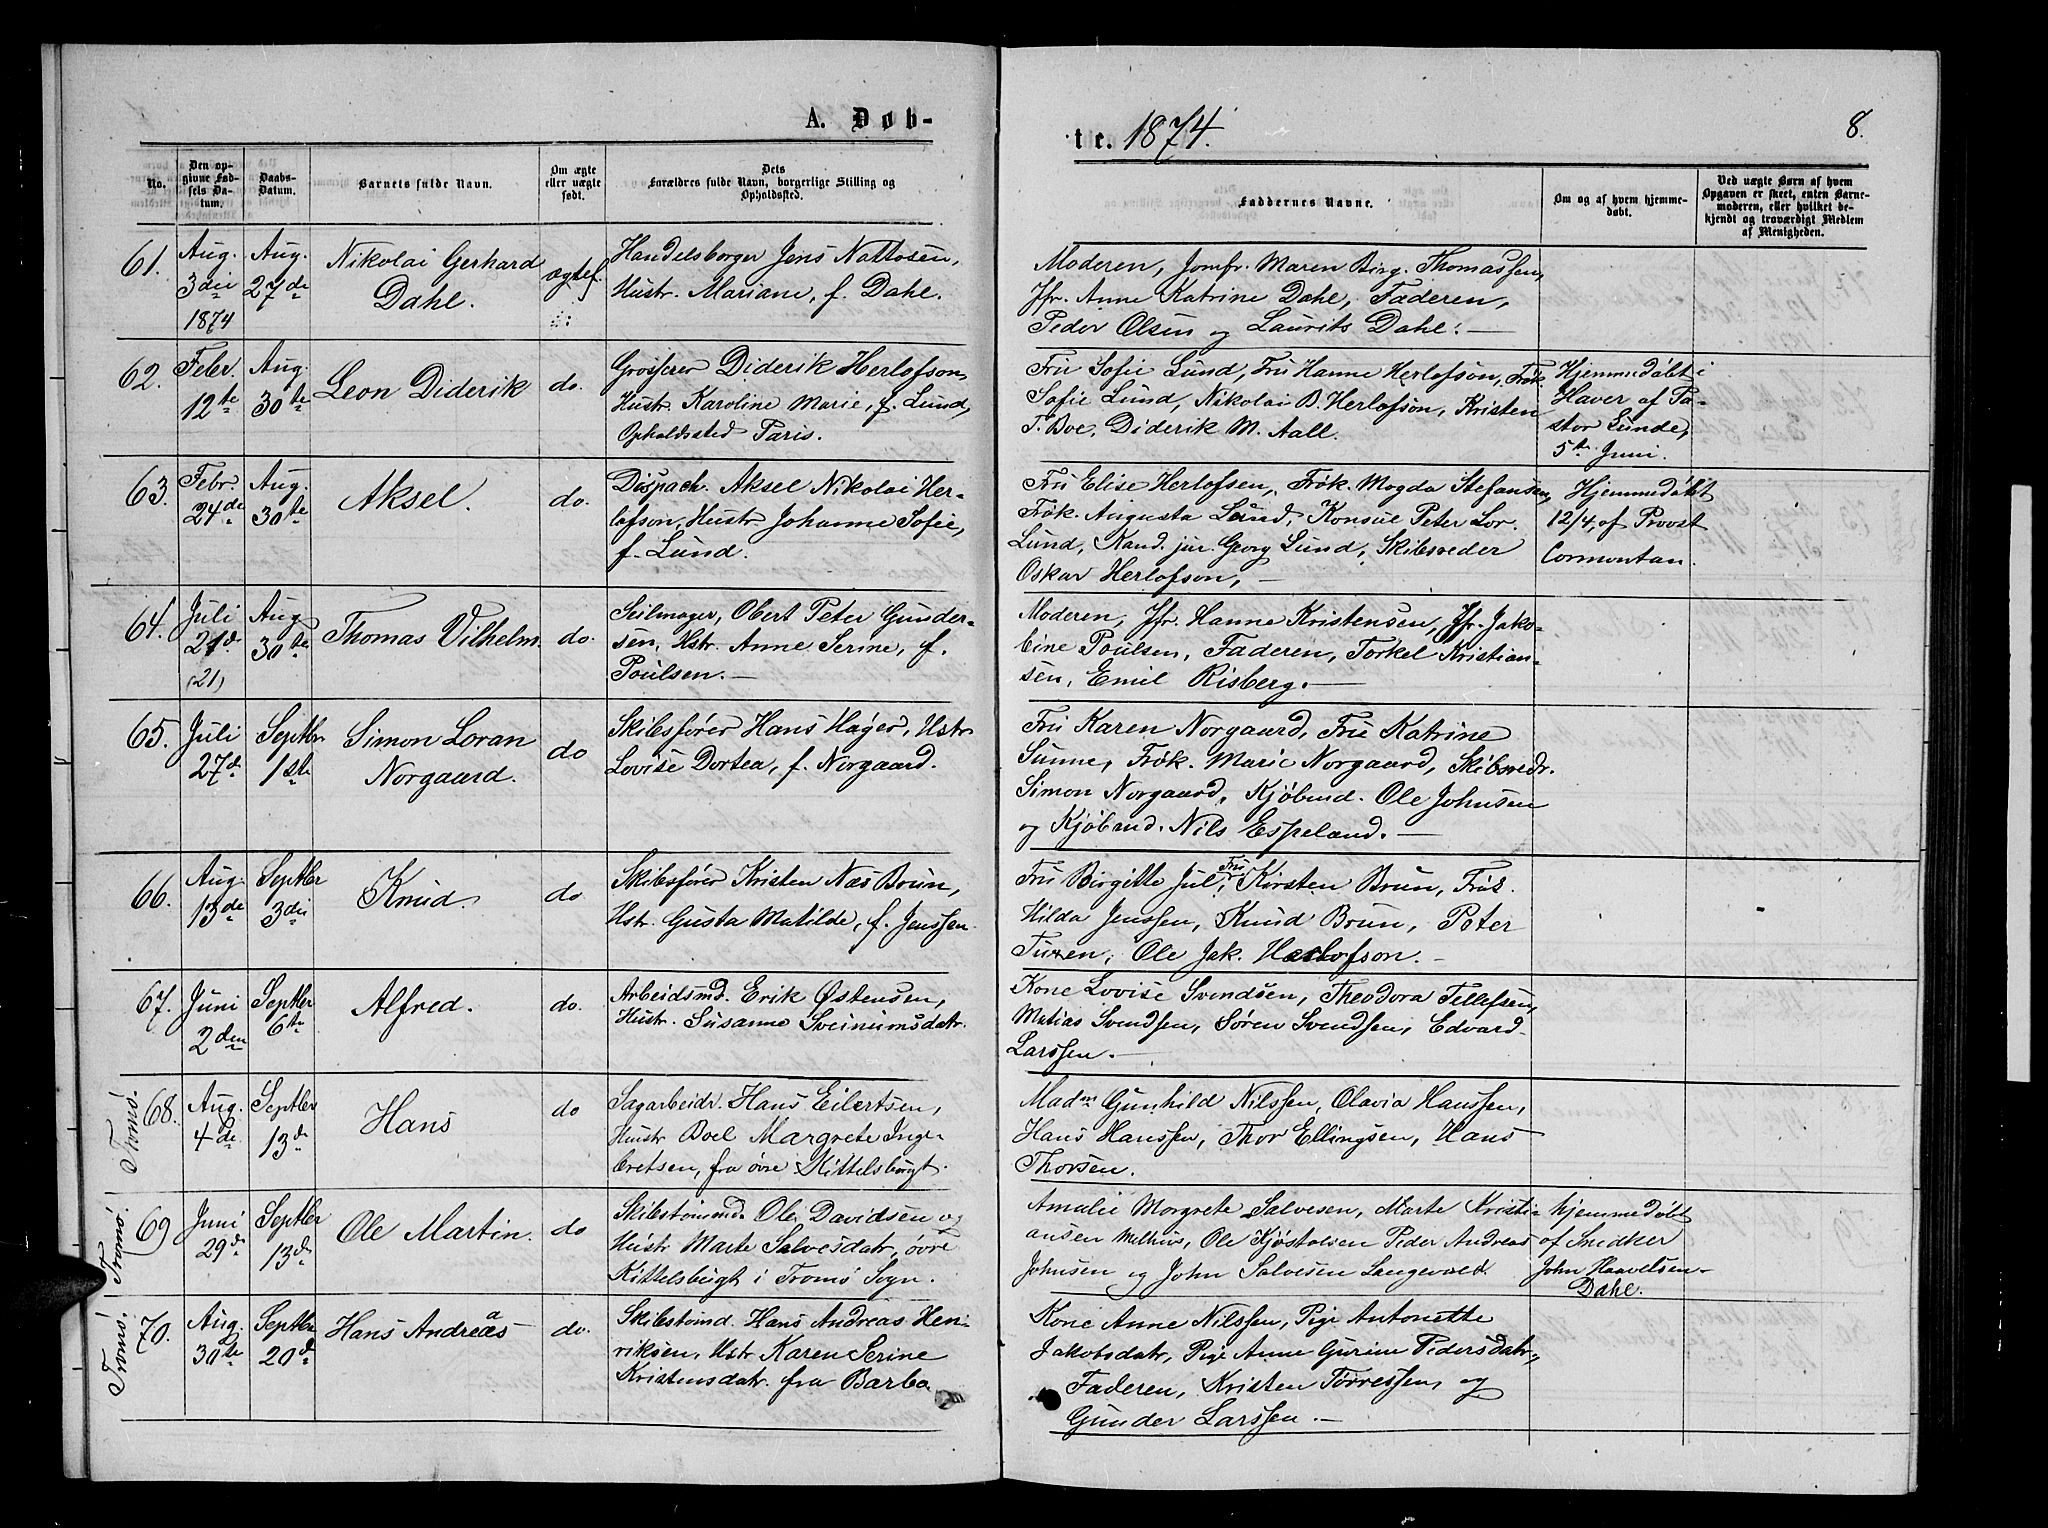 A. Døb-
te. 1874.
8.
No.
Den op-
givne Fød-
sels Da-
tum.
Daabs-
Datum.
Barnets fulde Navn.
Om ægte
eller uægte
født.
Dets
Forældres fulde Navn, borgerlige Stilling og
Opholdssted.
Faddernes Navne.
Om og af hvem hjemme-
døbt.
Ved uægte Børn af hvem
Opgaven er skeet, enten Barne-
moderen, eller hvilket be-
kjendt og troværdigt Medlem
af Menigheden.
61.
Aug.
3die
1874
Aug.
27de
Nikolai Gerhard
Dahl.
ægtef.
Handelsborger Jens Nattosen,
Hustr. Mariane, f. Dahl.
Moderen, Jomfr. Maren Birg. Thomassen,
Jfr. Anne Katrine Dahl, Faderen,
Peder Olsen og Laurits Dahl. —
62.
Febr.
12te
Aug.
30te
Leon Diderik
do.
Grosserer Diderik Herlofson,
Hustr. Karoline Marie, f. Lund,
Opholdssted Paris.
Fru Sofie Lund, Fru Hanne Herlofson, Frøk.
Sofie Lund, Nikolai B. Herlofson, Kristen
T. Boe, Diderik M. Aall.
Hjemmedøbt i
Haver af Pa-
stor Lunde,
5te Juni.
63.
Febr.
24de
Aug.
30te
Aksel.
do.
Dispach. Aksel Nikolai Her-
lofson, Hustr Johanne Sofie,
f. Lund.
Fru Elise Herlofsen, Frøk. Magda Stefansen,
Frøk. Augusta Lund, Konsul Peter Lor.
Lund, Kand. jur. Georg Lund, Skibsreder
Oskar Herlofson, —
Hjemmedøbt
12/4, af Provst
Cormontan.
64.
Juli
21de
(21)
Aug
30te
Thomas Vilhelm.
do.
Seilmager, Obert Peter Gunder-
sen, Hstr. Anne Serine, f.
Poulsen. —
Moderen, Jfr. Hanne Kristensen, Jfr. Jako-
bine Poulsen, Faderen, Torkel Kristian-
sen, Emil Risberg. —
65.
Juli
27de
Septbr
1ste
Simon Loran
Norgaard.
do
Skibsfører Hans Høyer, Hstr
Lovise Dortea, f. Norgaard.
Fru Karen Norgaard, Fru Katrine
Sunne, Frøk. Marie Norgaard, Skibsredr.
Simon Norgaard, Kjøbmd. Ole Johnsen
og Kjøbmd. Nils Espeland. —
66.
Aug.
13de
Septbr
3die
Knud.
do
Skibsfører Kristen Næs Brun,
Hstr. Gusta Matilde, f. Jenssen.
Fru Birgitte Jul, Fru Kirsten Brun, Frøk.
Hilda Jenssen, Knud Brun, Peter
Furen, Ole Jak. Herlofson. —
67.
Juni
2den
Septbr
6te
Alfred.
do.
Arbeidsmd. Erik Østensen,
Hustr. Susanne Sveinumsdatr.
Kone Lovise Svendsen, Theodora Tellefsen,
Matias Svendsen, Søren Svendsen, Edvard
Larssen. —
Tromø.
68.
Aug.
4de
Septbr
13de
Hans
do
Sagarbeidr. Hans Eilertsen,
Hustr Boel Margrete Inge-
bretsen, fra øvre Kittelsbugt.
Madm Gunhild Nilssen, Olavia Hanssen,
Hans Hanssen, Thor Ellingsen, Hans
Thorsen.
Tromø.
69
Juni
29de
Septbr
13de
Ole Martin.
do
Skibstømmd. Ole Davidsen og
Hustr Marte Salvesdatr, øvre
Kittelsbugt i Tromø Sogn.
Amalie Margrete Salvesen, Marte Kristi-
ansen Melhus, Ole Kjøstolsen Peder Andreas
Johnsen og John Salvesen Langevold.
hjemmedøbt
af Snedker
John Haavelsen
Dahl.
Tromø.
70.
Aug.
30te
Septbr
20de
Hans Andreas
do.
Skibstømd. Hans Andreas Hen-
riksen, Hstr Karen Serine
Kristensdatr. fra Barbo
Kone Anne Nilssen, Pige Antonette
Jakobsdatr, Pige Anne Gurine Pedersdatr,
Faderen, Kristen Torressen, og
Gunder Larssen. —